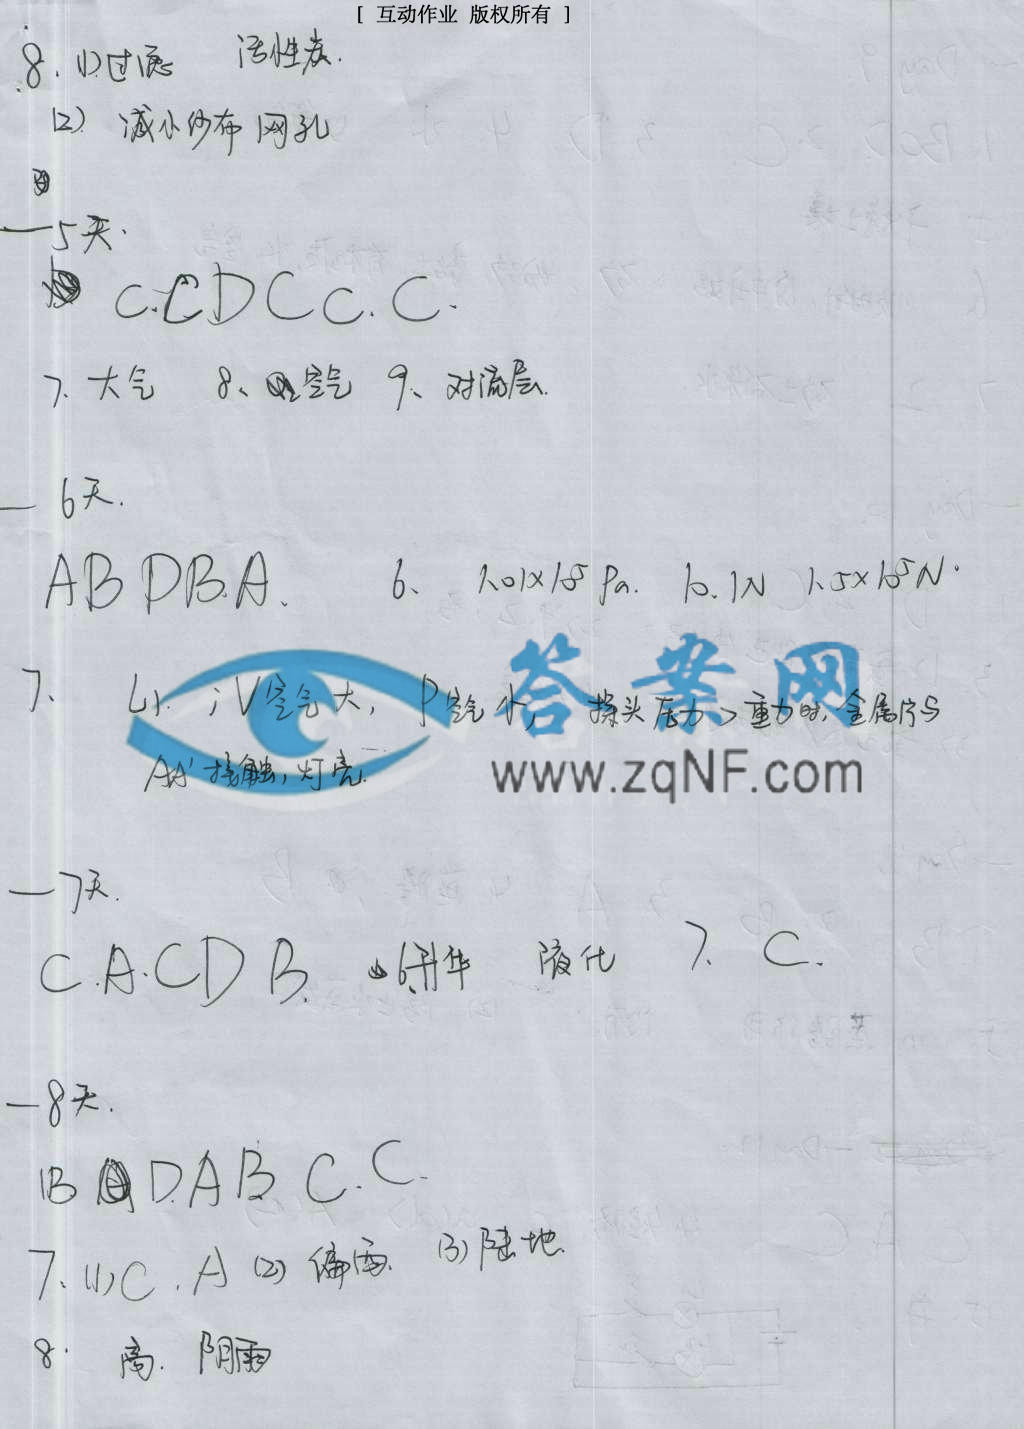 [ 互动作业 版权所有 ]
8. (1)过滤 活性炭.
(2) 减小纱布网孔
5天.
C. C D C C. C.
7、大气 8、空气 9、对流层.
6天.
A B D B. A. 6、 1.01×10⁵Pa. 10.1N 1.5×10⁵N.
答案网
7、 (1). ; V空气大, P空气小, 探头压力>重力时, 金属片与
AA'接触, 灯亮.
www.zqNF.com
7天.
C. A. C D B. 6.升华 液化 7. C.
8天.
B D. A B C. C.
7、(1) C. A (2) 偏西. (3) 陆地.
8. 高. 阴雨